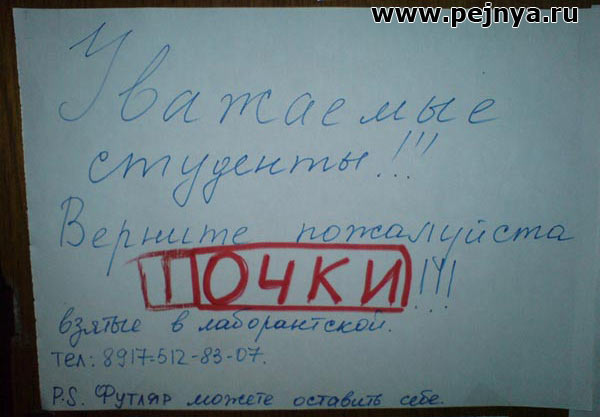 www.pejnya.ru
Уважаемые
студенты!!!
Верните пожалуйста
ОЧКИ!!!
взятые в лаборантской.
тел: 8917-512-83-07.
P.S. Футляр можете оставить себе.